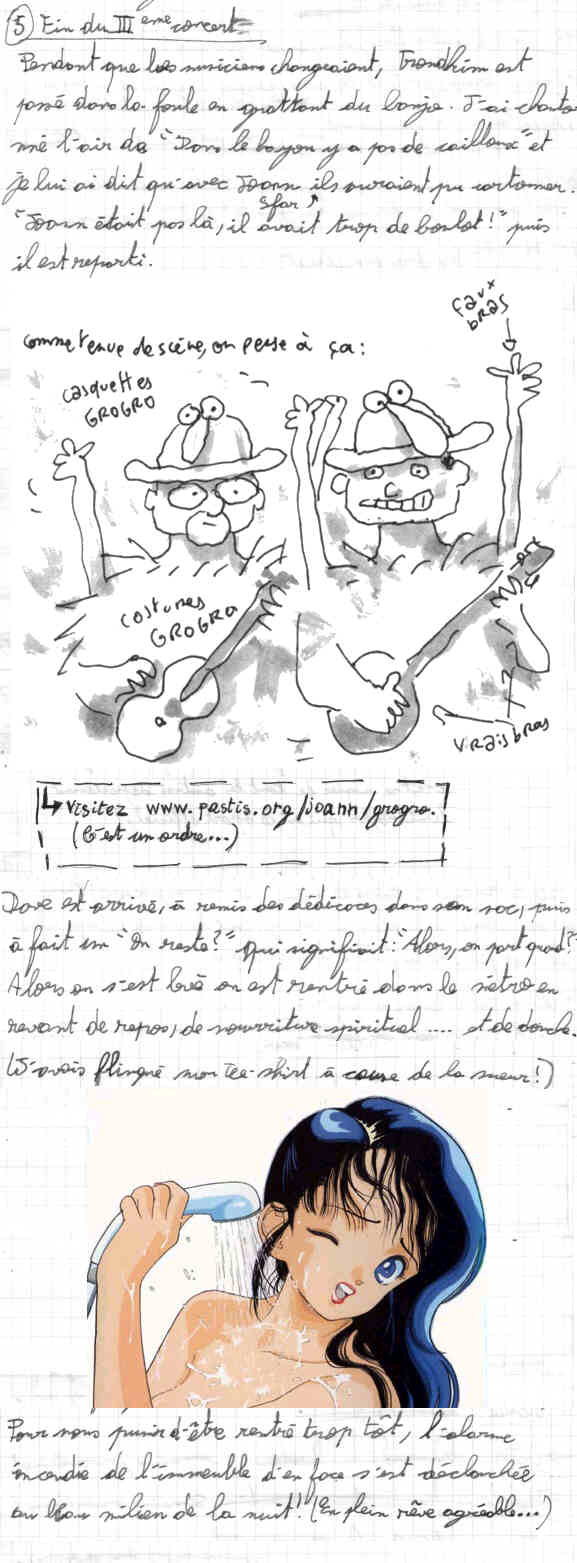 5 Fin du III eme concert
Pendant que les musiciens changeaient, Trondheim est
passé dans la foule en grattant du banjo. J'ai chanton-
né l'air da "Dans le bayou y a pas de cailloux" et
je lui ai dit qu'avec Joann ils auraient pu cartonner.
Sfar
"Joann était pas là, il avait trop de boulot!" puis
il est reparti.
comme tenue de scène, on pense à ça:
faux
bras
casquettes
GROGRO
costumes
GROGRO
vrais bras
visitez www.pastis.org/joann/grogro.
(C'est un ordre...)
est arrivé, à remis des dédicaces dans son sac, puis
à fait un "On reste?" qui signifiait: "Alors, on part quand?"
Alors on s'est levé on est rentré dans le métro en
revant de repos, de nourriture spirituel .... et de douche.
(J'avais flingué mon tee-shirt à cause de la sueur!)
Pour nous punir d'être rentré trop tôt, l'alarme
incendie de l'immeuble d'en face s'est déclanchée
au milieu de la nuit! (En plein rêve agréable...)